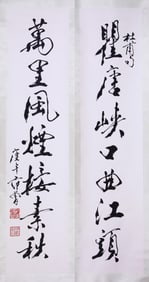 杜甫句
瞿唐峡口曲江頭
萬里風煙接素秋
庚午